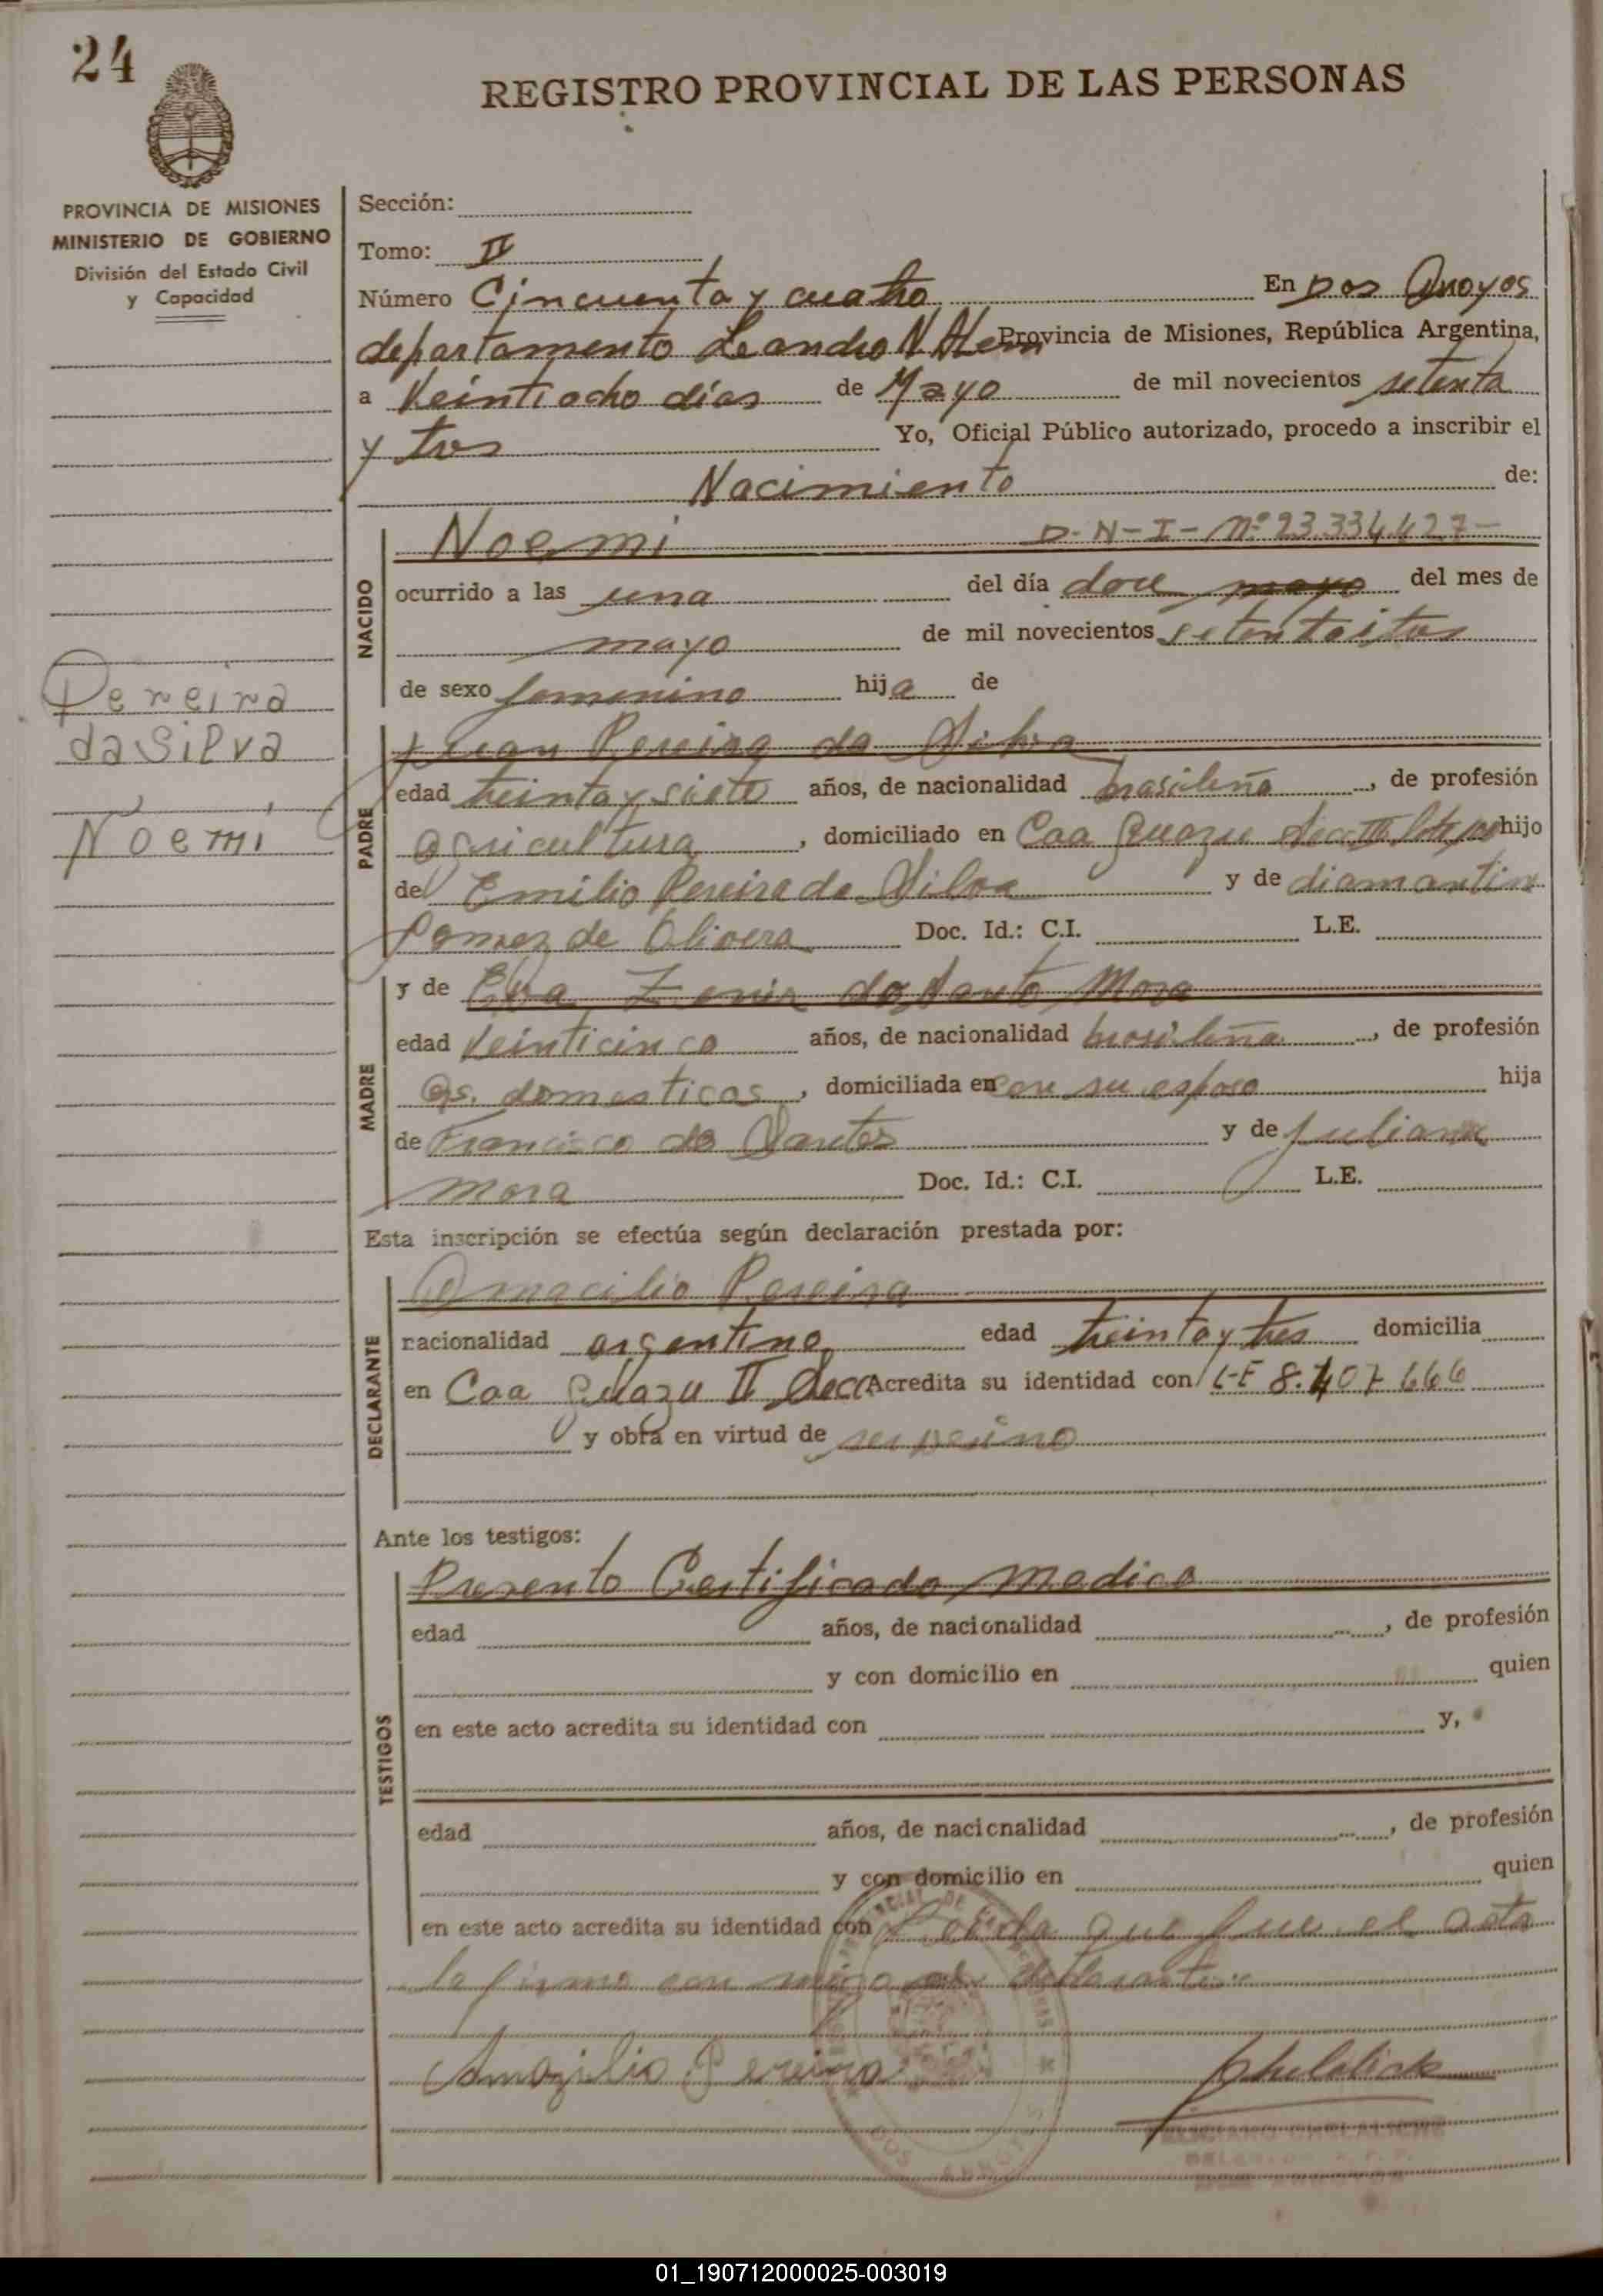 24
REGISTRO PROVINCIAL DE LAS PERSONAS
PROVINCIA DE MISIONES
MINISTERIO DE GOBIERNO
División del Estado Civil
y Capacidad
Sección:
Tomo: IV
Número Cincuenta y cuatro En Dos Arroyos
departamento Leandro N. Alem Provincia de Misiones, República Argentina,
a Veintiocho días de Mayo de mil novecientos setenta
y tres Yo, Oficial Público autorizado, procedo a inscribir el
Nacimiento de:
NACIDO
Noemi D-N-I-Nº 23.334.427-
ocurrido a las una del día doce mayo del mes de
mayo de mil novecientos setentaitres
de sexo femenino hija de
Pereira
da Silva
Noemi
PADRE
Juan Pereira da Silva
edad treinta y siete años, de nacionalidad brasileña, de profesión
agricultura, domiciliado en Caa Guazu Secc II lote hijo
de Emilio Pereira da Silva y de diamantin
Gomez de Olivera Doc. Id.: C.I. L.E.
MADRE
y de Elva dos Santo Mora
edad Veinticinco años, de nacionalidad brasileña, de profesión
Qs. domesticas, domiciliada en con su esposo hija
de Francisco do Santos y de Juliana
Mora Doc. Id.: C.I. L.E.
Esta inscripción se efectúa según declaración prestada por:
DECLARANTE
Amacilio Pereira
nacionalidad argentino edad treinta y tres domicilia
en Caa Guazu II Secc Acredita su identidad con L-E 8.407.666
y obra en virtud de ser vecino
Ante los testigos:
TESTIGOS
Presento Certificado Medico
edad años, de nacionalidad , de profesión
y con domicilio en quien
en este acto acredita su identidad con y,
edad años, de nacionalidad , de profesión
y con domicilio en quien
en este acto acredita su identidad con Leida que fue el acta
la firma con migo el declarante.
Amazilio Pereira
DOS ARROYOS
01_190712000025-003019